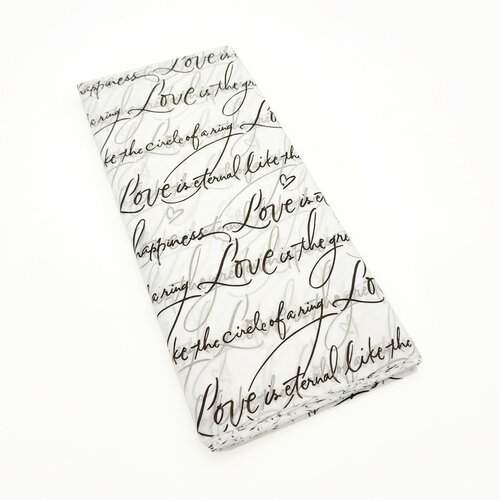 happiness Love is the gre
a ring
ke the circle of a ring
Love is eternal like the
happiness Love is et
a ring Love is the gre
ke the circle of a ring Lo
Love is eternal like the